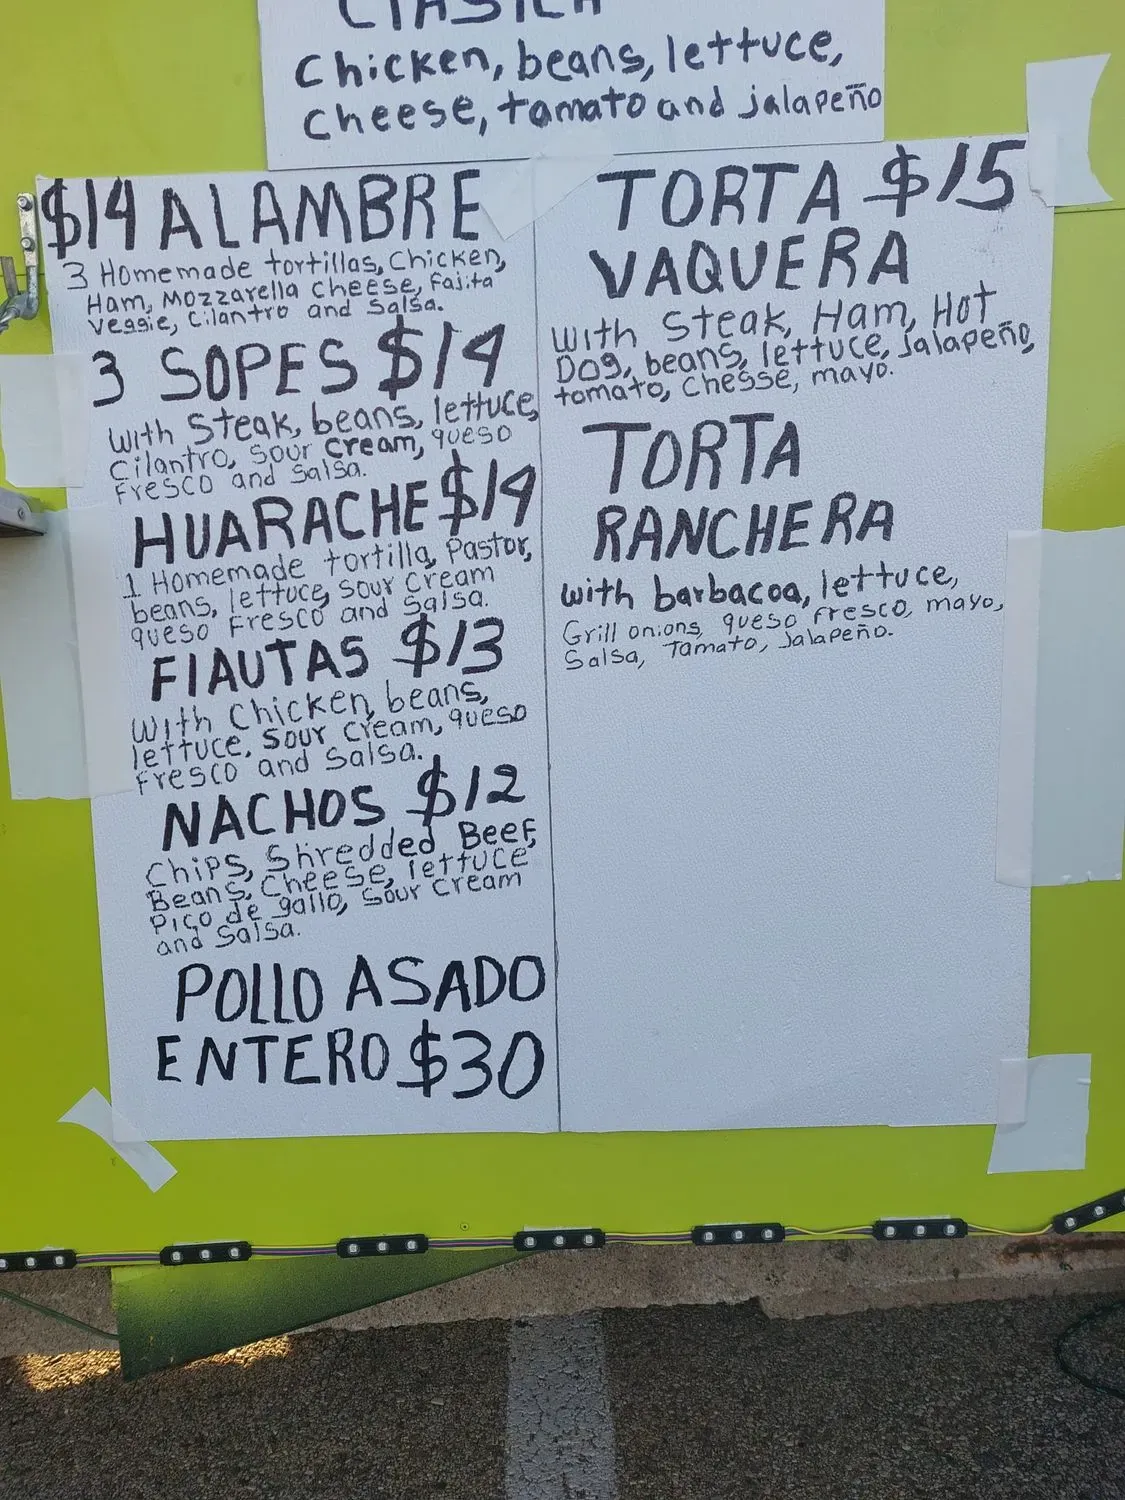 CLASICA
Chicken, beans, lettuce,
cheese, tamato and jalapeño
$14 ALAMBRE
3 Homemade tortillas, Chicken,
Ham, Mozzarella cheese, Fajita
Veggie, Cilantro and Salsa.
3 SOPES $14
With Steak, beans, lettuce,
Cilantro, Sour cream, queso
Fresco and Salsa.
HUARACHE $14
1 Homemade tortilla, Pastor,
beans, lettuce, Sour Cream
queso Fresco and Salsa.
FIAUTAS $13
With Chicken, beans,
lettuce, Sour Cream, queso
Fresco and Salsa.
NACHOS $12
Chips, Shredded Beef,
Beans, Cheese, lettuce
Pico de gallo, Sour Cream
and Salsa.
POLLO ASADO
ENTERO $30
TORTA $15
VAQUERA
With Steak, Ham, Hot
Dog, beans, lettuce, Jalapeño,
tomato, Chesse, mayo.
TORTA
RANCHERA
with barbacoa, lettuce,
Grill onions, queso fresco, mayo,
Salsa, Tamato, Jalapeño.